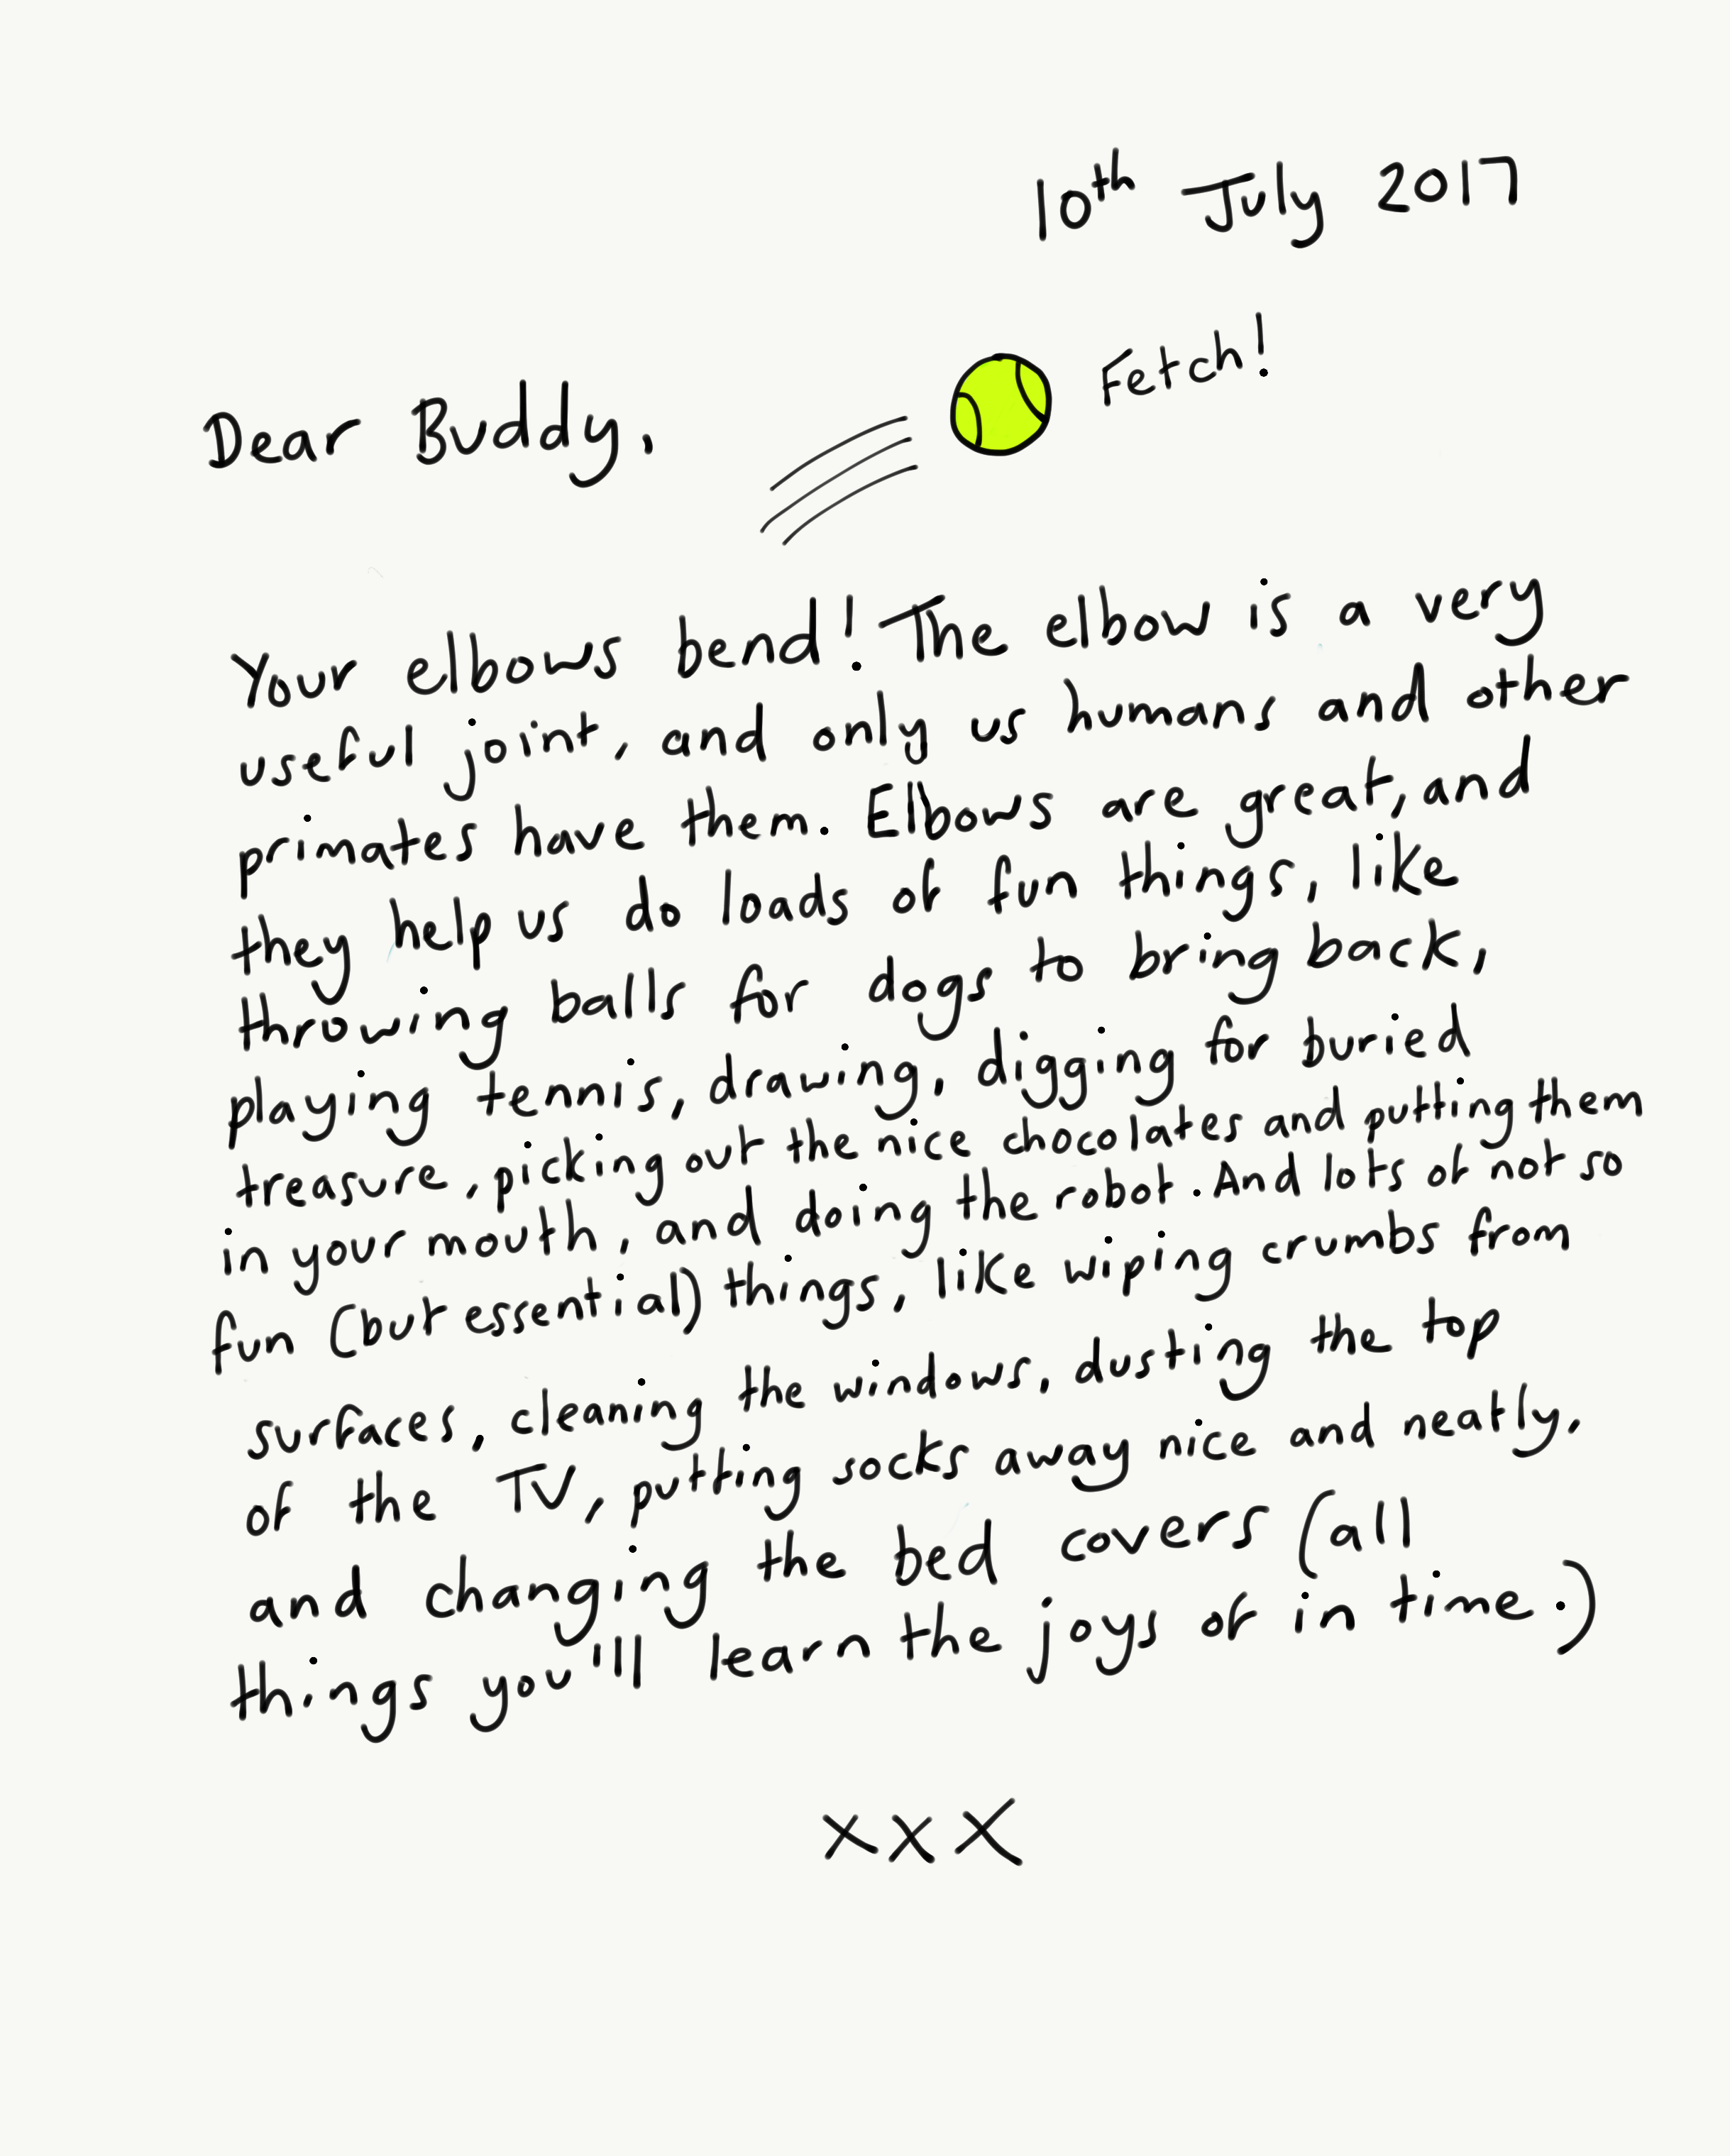 10th July 2017
Fetch!
Dear Buddy,
Your elbows bend! The elbow is a very
useful joint, and only us humans and other
primates have them. Elbows are great, and
they help us do loads of fun things, like
throwing balls for dogs to bring back,
playing tennis, drawing, digging for buried
treasure, picking out the nice chocolates and putting them
in your mouth, and doing the robot. And lots of not so
fun (but essential) things, like wiping crumbs from
surfaces, cleaning the windows, dusting the top
of the TV, putting socks away nice and neatly,
and changing the bed covers (all
things you'll learn the joys of in time.)
xxx